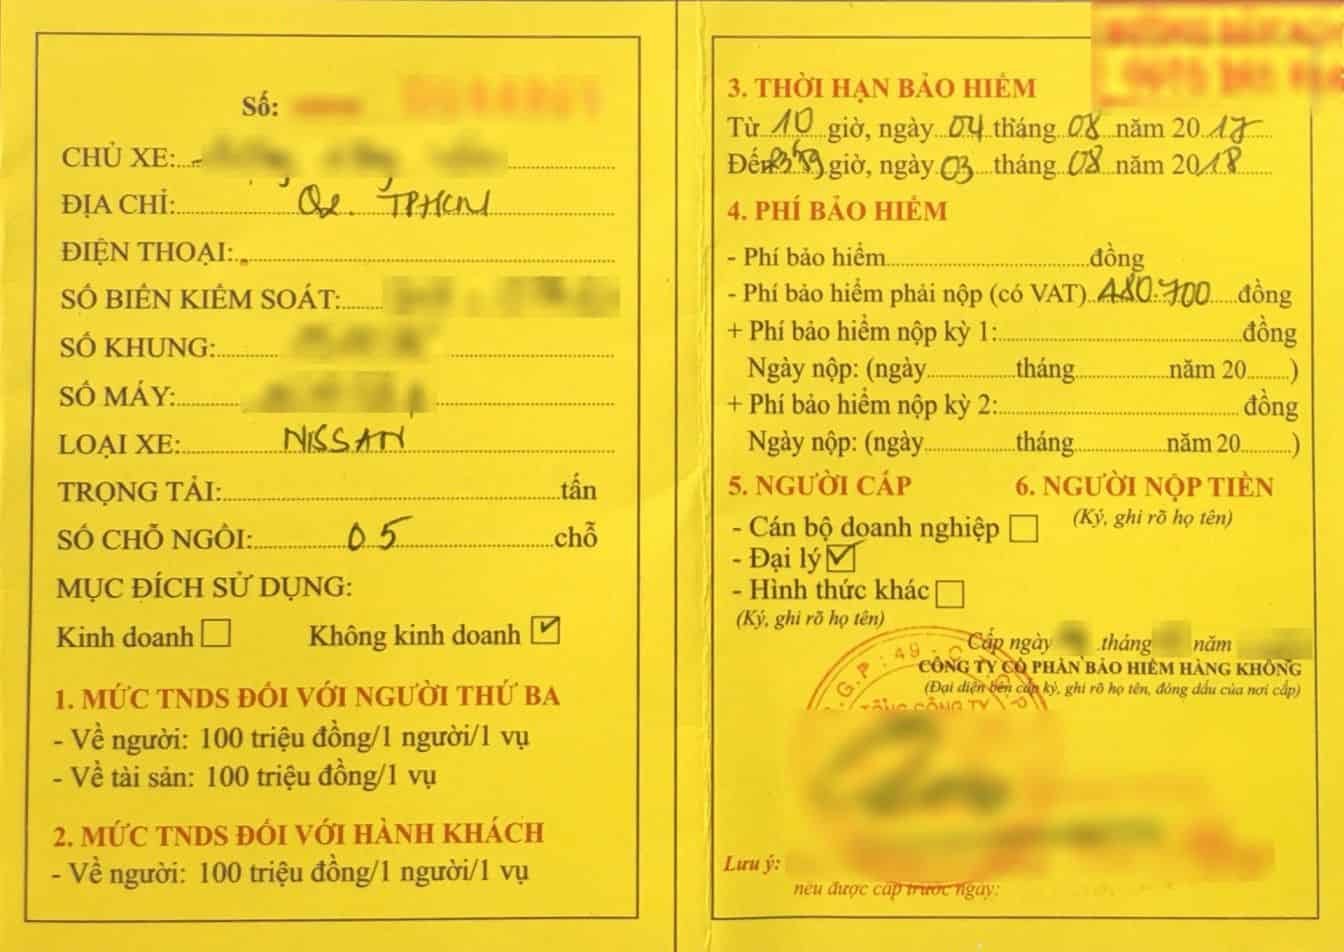 Số:
CHỦ XE:
ĐỊA CHỈ: Q2. TPHCM
ĐIỆN THOẠI:
SỐ BIỂN KIỂM SOÁT:
SỐ KHUNG:
SỐ MÁY:
LOẠI XE: NISSAN
TRỌNG TẢI: tấn
SỐ CHỖ NGỒI: 05 chỗ
MỤC ĐÍCH SỬ DỤNG:
Kinh doanh ☐ Không kinh doanh ☑
1. MỨC TNDS ĐỐI VỚI NGƯỜI THỨ BA
- Về người: 100 triệu đồng/1 người/1 vụ
- Về tài sản: 100 triệu đồng/1 vụ
2. MỨC TNDS ĐỐI VỚI HÀNH KHÁCH
- Về người: 100 triệu đồng/1 người/1 vụ
3. THỜI HẠN BẢO HIỂM
Từ 10 giờ, ngày 04 tháng 08 năm 2017
Đến 23h59 giờ, ngày 03 tháng 08 năm 2018
4. PHÍ BẢO HIỂM
- Phí bảo hiểm đồng
- Phí bảo hiểm phải nộp (có VAT) 480.700 đồng
+ Phí bảo hiểm nộp kỳ 1: đồng
Ngày nộp: (ngày tháng năm 20 )
+ Phí bảo hiểm nộp kỳ 2: đồng
Ngày nộp: (ngày tháng năm 20 )
5. NGƯỜI CẤP
- Cán bộ doanh nghiệp ☐
- Đại lý ☑
- Hình thức khác ☐
(Ký, ghi rõ họ tên)
6. NGƯỜI NỘP TIỀN
(Ký, ghi rõ họ tên)
Cấp ngày tháng năm
CÔNG TY CỔ PHẦN BẢO HIỂM HÀNG KHÔNG
(Đại diện bên cấp ký, ghi rõ họ tên, đóng dấu của nơi cấp)
G.P : 49 - C
TỔNG CÔNG TY
Lưu ý:
nếu được cấp trước ngày: